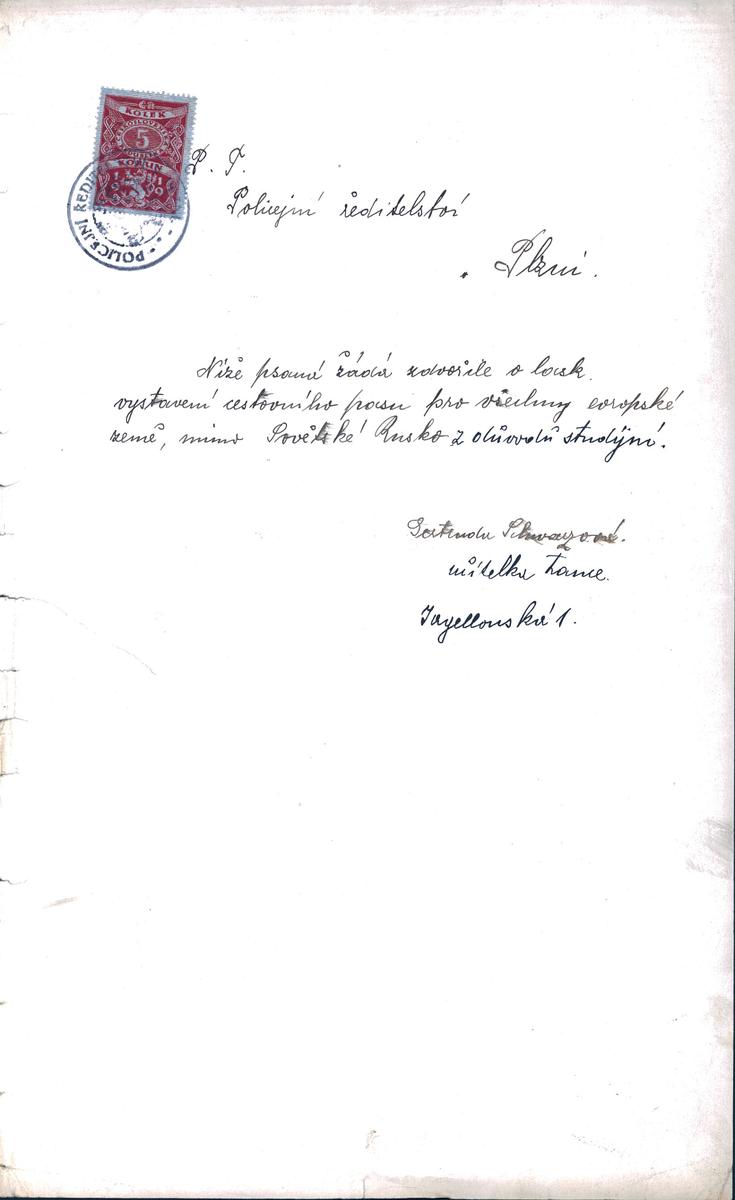 ČR
KOLEK
ČESKOSLOVENSKÁ
5
KORUN
POLICEJNÍ ŘEDIT
P. T.
Policejní ředitelství
v Plzni.
Níže psaná žádá zdvořile o lask.
vystavení cestovního pasu pro všechny evropské
země, mimo Sovětské Rusko z důvodů studijní.
Gertruda Schwarzová.
učitelka tance.
Jagellonská 1.